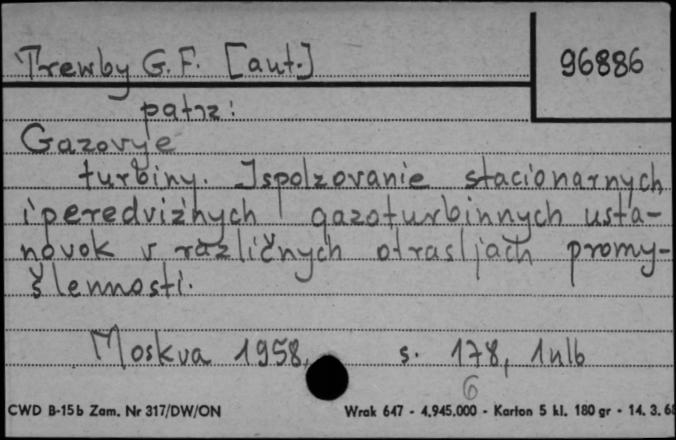 Trewby G. F. [aut.]
96886
patrz:
Gazovye
turbiny. Ispolzovanie stacionarnych
i peredvižnych gazoturbinnych usta-
novok v različnych otrasljach promy-
šlennosti.
Moskva 1958, s. 178, 1nlb
6
CWD B-15b Zam. Nr 317/DW/ON Wrak 647 - 4,945.000 - Karton 5 kl. 180 gr - 14. 3. 68